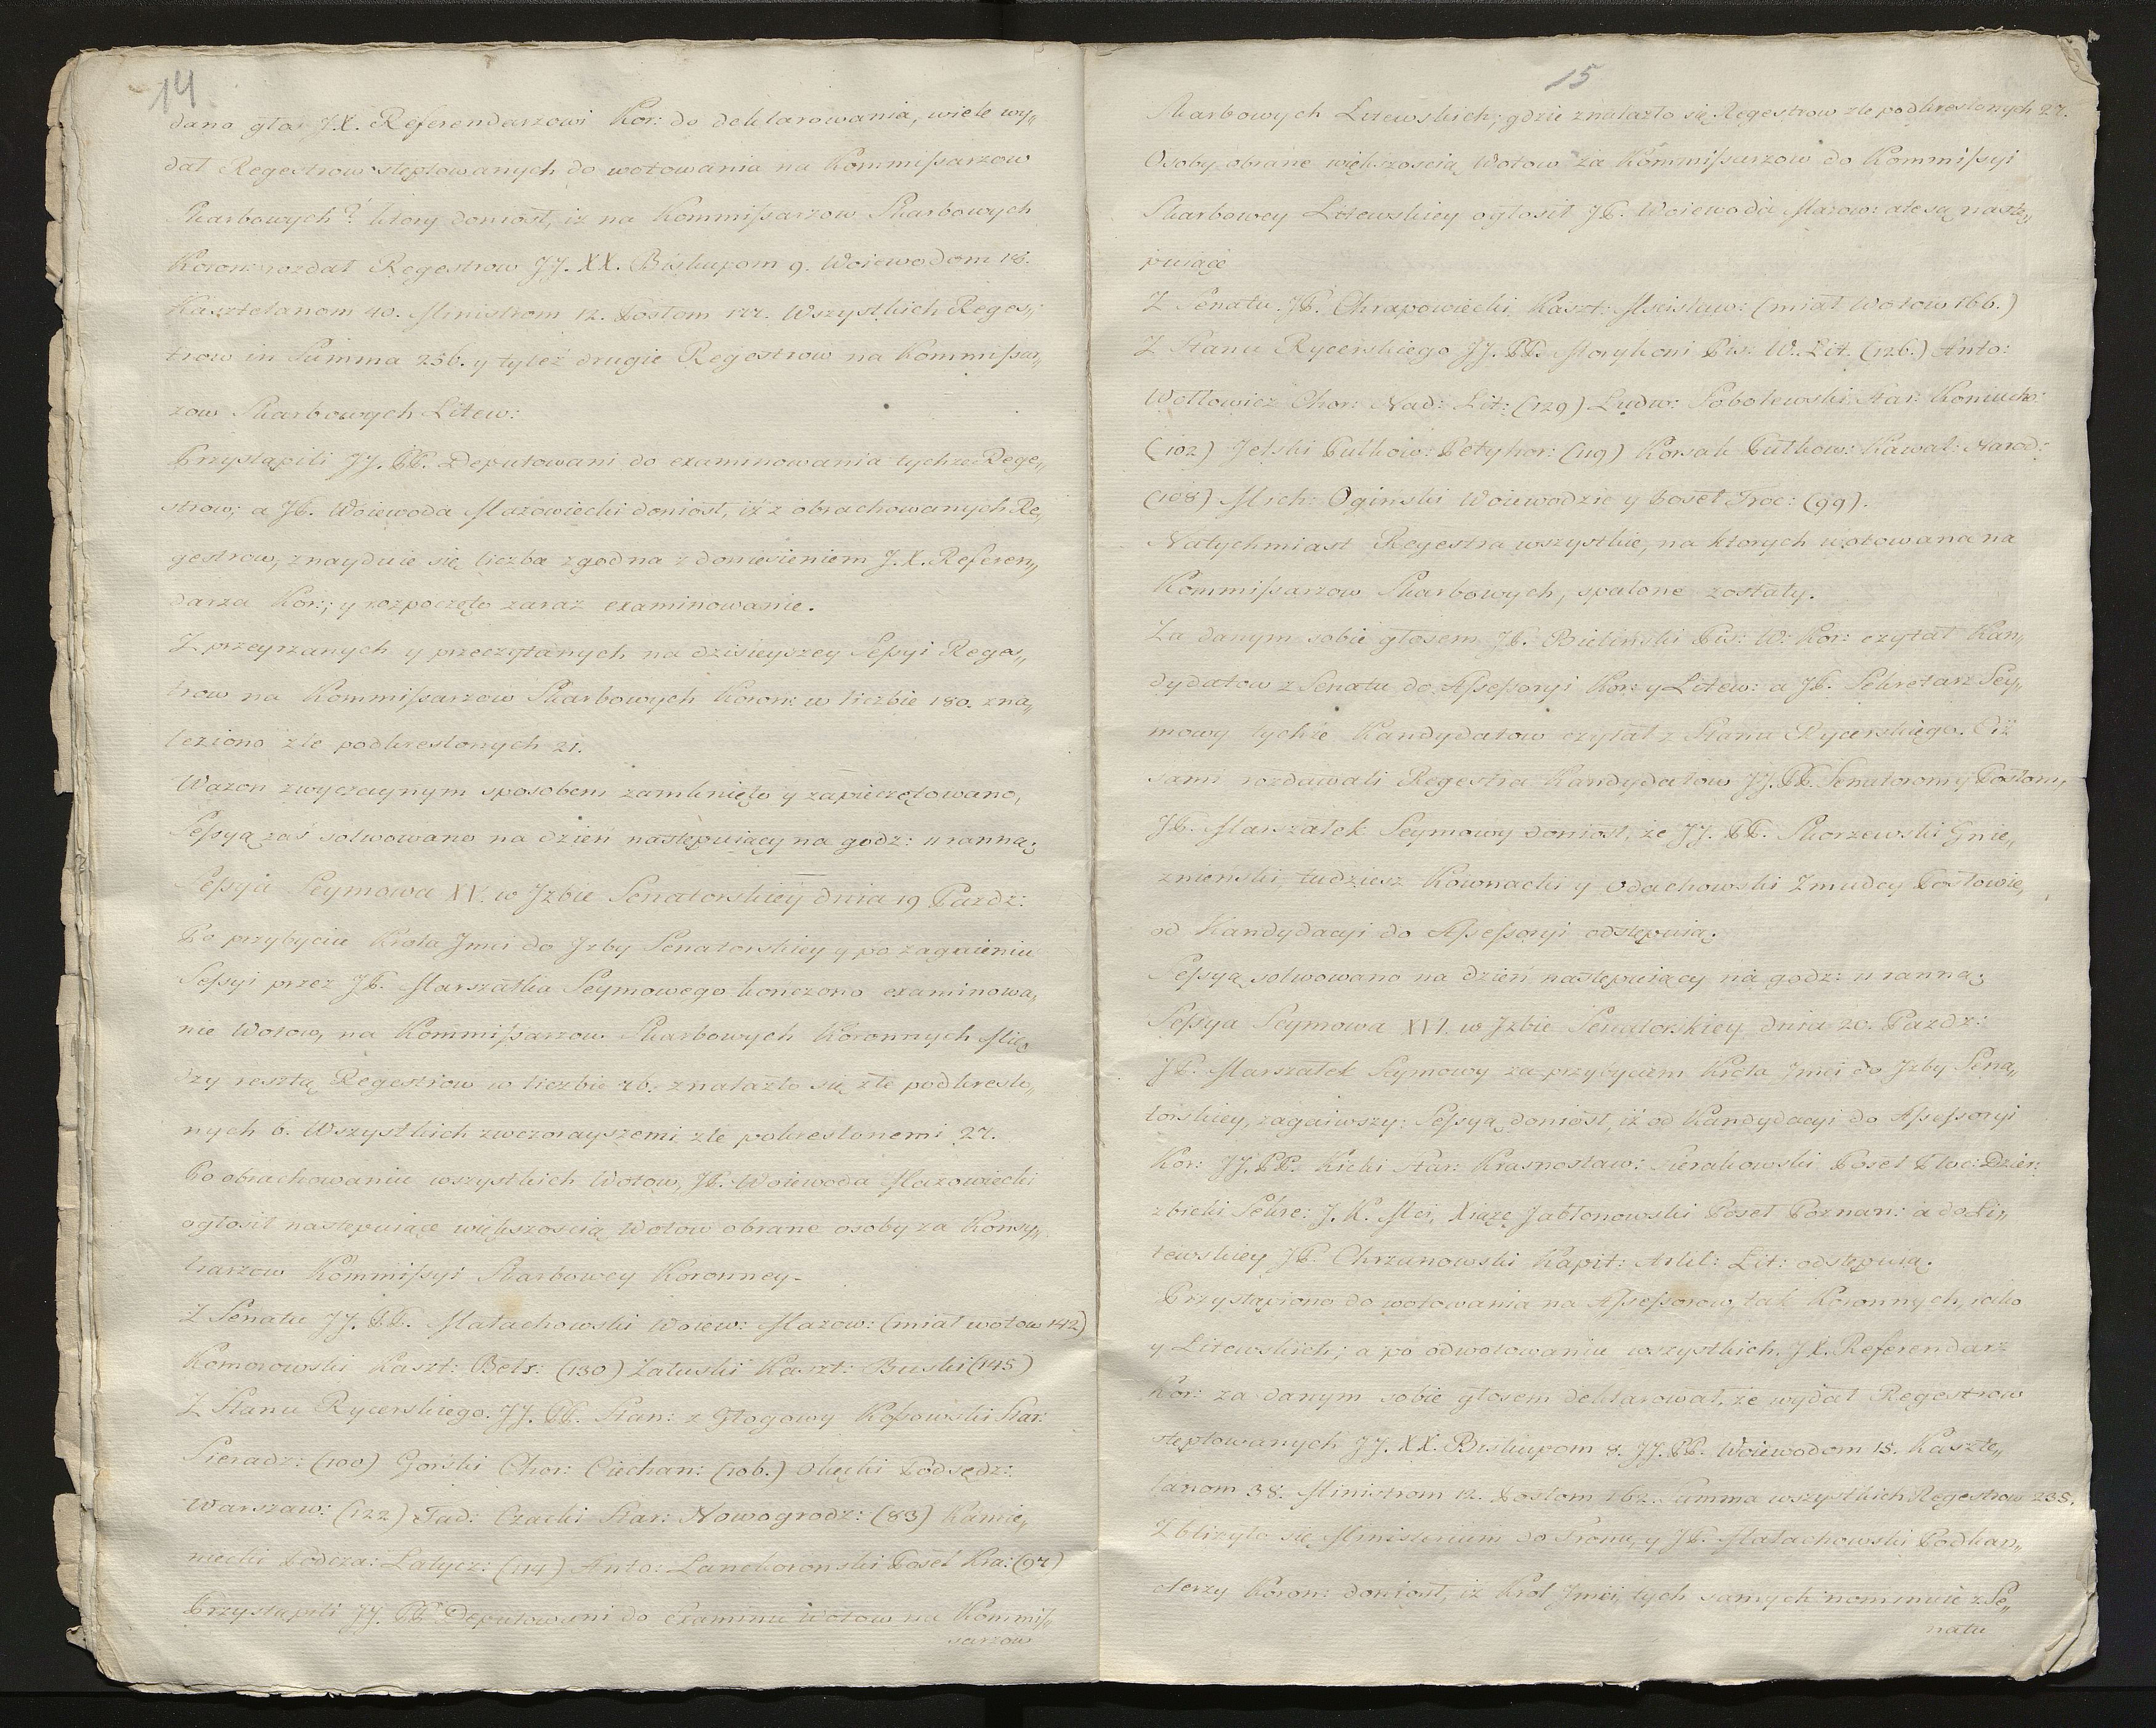 14
dano głos J.X. Referendarzowi Kor: do deklarowania, wiele wy„
dał Regestrow steplowanych do wotowania na Kommißarzow
Skarbowych? ktory doniosł, iż na Kommißarzow Skarbowych
Koron: rozdał Regestrow JJ. XX. Biskupom 9. Woiewodom 18.
Kasztelanom 40. Ministrom 12. Posłom 177. Wszystkich Reges„
trow in Summa 256. y tyleż drugie Regestrow na Kommißar„
zow Skarbowych Litew:
Przystąpili JJ. PP. Deputowani do examinowania tychże Rege„
strow; a JP. Woiewoda Mazowiecki doniosł, iż z obrachowanych Re„
gestrow, znayduie się liczba zgodna z doniesieniem J.X. Referen„
darza Kor:; y rozpoczęto zaraz examinowanie.
Z przeyrzanych y przeczytanych na dzisieyszey Seßyi Reges„
trow na Kommißarzow Skarbowych Koron: w liczbie 180. zna„
leziono źle podkreslonych 21.
Wazon zwyczaynym sposobem zamknięto y zapieczętowano,
Seßyą zaś solwowano na dzień następuiący na godz: 11 ranną.
Seßyia Seymowa XV. w Jzbie Senatorskiey dnia 19 Pazdz:
Po przybyciu Krola Jmci do Jzby Senatorskiey y po zagaieniu
Seßyi przez JP. Marszałka Seymowego konczono examinowa„
nie Wotow, na Kommißarzow Skarbowych Koronnych Mię„
dzy resztą Regestrow w liczbie 76. znalazło się źle podkreslo„
nych 6. Wszystkich zwczorayszemi źle pokreslonemi 27.
Po obrachowaniu wszystkich Wotow, JP. Woiewoda Mazowiecki
ogłosił następuiące większoscią Wotow obrane osoby za Kommiß„
harzow Kommißyi Skarbowey Koronney-
Z Senatu JJ. PP. Małachowski Woiew: Mazow: (miał wotow 142)
Komorowski Kaszt: Bełz: (130) Załuski Kaszt: Buski (145)
Z Stanu Rycerskiego. JJ. PP. Stan: z Głogowy Koßowski Star:
Sieradz: (100) Gorski Chor: Ciechan: (106.) Olęcki Podsędz:
Warszaw: (122) Tad: Czacki Star: Nowogrodz: (83) Kamie„
niecki Podcza: Latycz: (114) Anto: Lanckoronski Poseł Kra: (97)
Przystąpili JJ. PP. Deputowani do Examinu Wotow na Kommiß„
sarzow
15
Skarbowych Litewskich; gdzie znalazło się Regestrow źle podkreslonych 27.
Osoby obrane większoscią Wotow za Kommißarzow do Kommißyi
Skarbowey Litewskiey ogłosił JP. Woiewoda Mazow: a te są nastę„
puiące
Z Senatu. JP. Chrapowiecki Kaszt: Mscisław: (miał Wotow 166.)
Z Stanu Rycerskiego JJ. PP. Morykoni Pis: W. Lit: (126.) Anto:
Wołłowicz Chor: Nad: Lit: (129) Ludw: Sobolewski Star: Koniucho:
(102) Jelski Pułkow: Petyhor: (119) Korsak Pułkow: Kawal: Narod:
(108) Mich: Oginski Woiewodzic y Poseł Troc: (99).
Natychmiast Regestra wszystkie, na ktorych wotowana na
Kommißarzow Skarbowych, spalone zostały.
Za danym sobie głosem JP. Bielinski Pis: W: Kor: czytał Kan„
dydatow z Senatu do Aßeßoryi Kor: y Litew: a JP. Sekretarz Sey„
mowy tychże Kandydatow czytał z Stanu Rycerskiego. Ciż
sami rozdawali Regestra Kandydatow JJ. PP. Senatorom y Posłom,
JP. Marszałek Seymowy doniosł, że JJ. PP. Skorzewski Gnie„
znienski, tudziesz Kownacki y Odachowski Zmudcy Posłowie,
od Kandydacyi do Aßeßoryi odstępuią.
Seßyą solwowano na dzień następuiący na godz: 11 ranną.
Seßya Seymowa XVI. w Jzbie Senatorskiey dnia 20. Pazdz:
JP. Marszałek Seymowy za przybyciem Krola Jmci do Jzby Sena„
torskiey, zagaiwszy: Seßyą doniosł, iż od Kandydacyi do Aßeßoryi
Kor: JJ. PP. Kicki Star: Krasnostaw: Sierakowski Poseł Płoc: Dzier:
zbicki Sekre: J. K. Mci, Xiąże Jabłonowski Poseł Poznan: a do Li„
tewskiey JP. Chrzanowski Kapit: Artil: Lit: odstępuią.
Przystąpiono do wotowania na Aßeßorow, tak Koronnych, iako
y Litewskich; a po odwotowaniu wszystkich, J.X. Referendarz
Kor: za danym sobie głosem deklarował, że wydał Regestrow
steplowanych JJ. XX. Biskupom 8. JJ. PP. Woiewodom 15. Kaszte„
lanom 38. Ministrom 12. Posłom 162. Summa wszystkich Regestrow 235.
Zbliżyło się Ministerium do Tronu, y JP. Małachowski Podkan„
clerzy Koron: doniosł, iż Krol Jmci, tych samych nominuie z Se„
natu